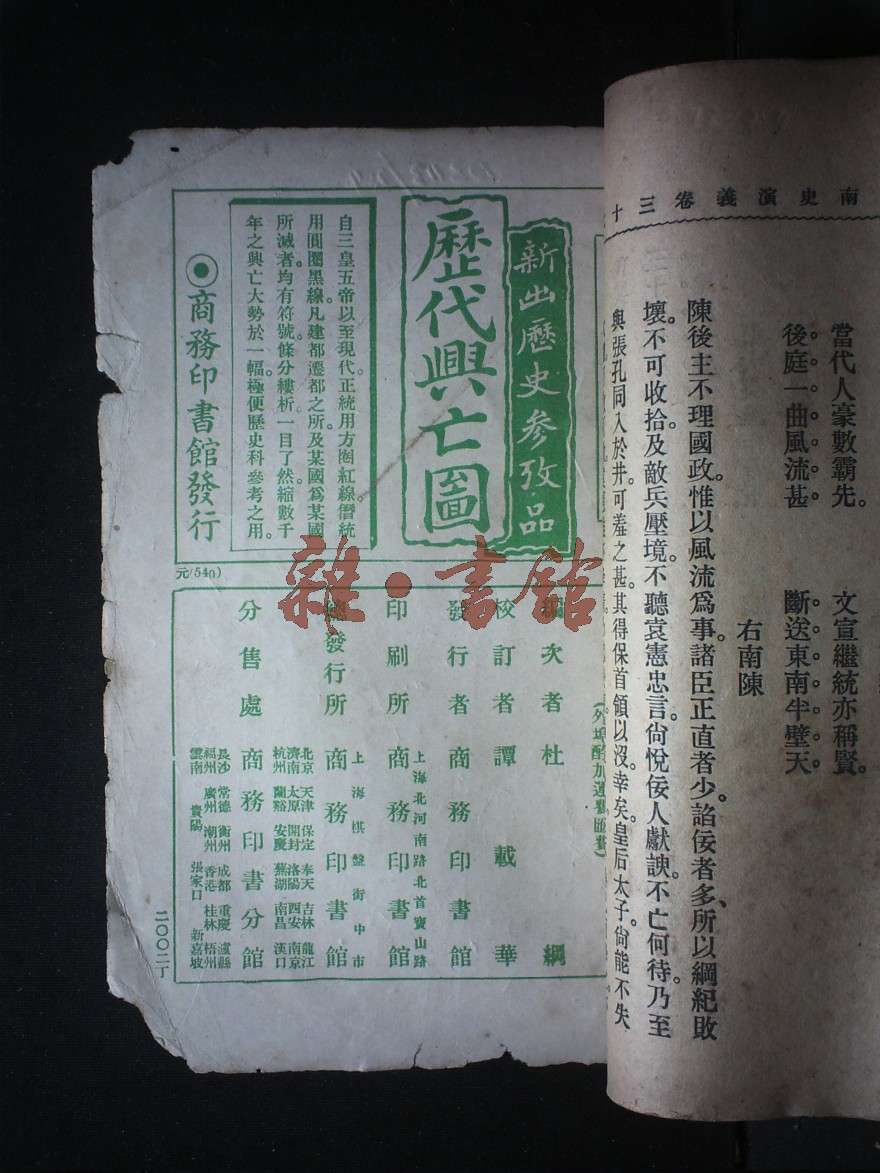 南史演義卷三十
當代人豪數霸先。 文宣繼統亦稱賢。
後庭一曲風流甚 斷送東南半壁天。
右南陳
陳後主不理國政。惟以風流爲事。諸臣正直者少。諂佞者多、所以綱紀敗
壞。不可收拾。及敵兵壓境。不聽袁憲忠言。尙悅佞人獻諛。不亡何待。乃至
與張孔同入於井。可羞之甚。其得保首領以沒。幸矣。皇后太子。尙能不失
新出歷史參攷品
歷代興亡圖
自三皇五帝以至現代。正統用方圈紅線。僭統
用圓圈黑線。凡建都遷都之所。及某國爲某國
所滅者。均有符號。條分縷析。一目了然。縮數千
年之興亡大勢於一幅。極便歷史科參考之用。
商務印書館發行
元(540)
編次者 杜綱
校訂者 譚載華
發行者 商務印書館
上海北河南路北首寶山路
印刷所 商務印書館
上海棋盤街中市
總發行所 商務印書館
北京 天津 保定 奉天 吉林 龍江
濟南 太原 開封 洛陽 西安 南京
杭州 蘭谿 安慶 蕪湖 南昌 漢口
分售處 商務印書分館
長沙 常德 衡州 成都 重慶 瀘縣
福州 廣州 潮州 香港 桂林 梧州
雲南 貴陽 張家口 新嘉坡
二〇〇二丁
雜·書館